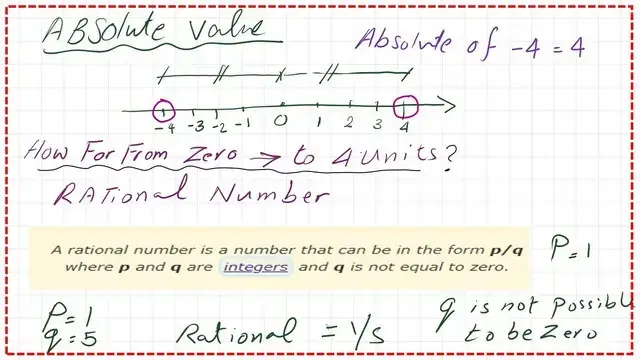 ABSolute Value
Absolute of -4 = 4
-4 -3 -2 -1 0 1 2 3 4
How For From Zero → to 4 Units?
RAtional Number
A rational number is a number that can be in the form p/q
where p and q are integers and q is not equal to zero.
P=1
P=1
q=5
Rational = 1/5
q is not possible
to be Zero